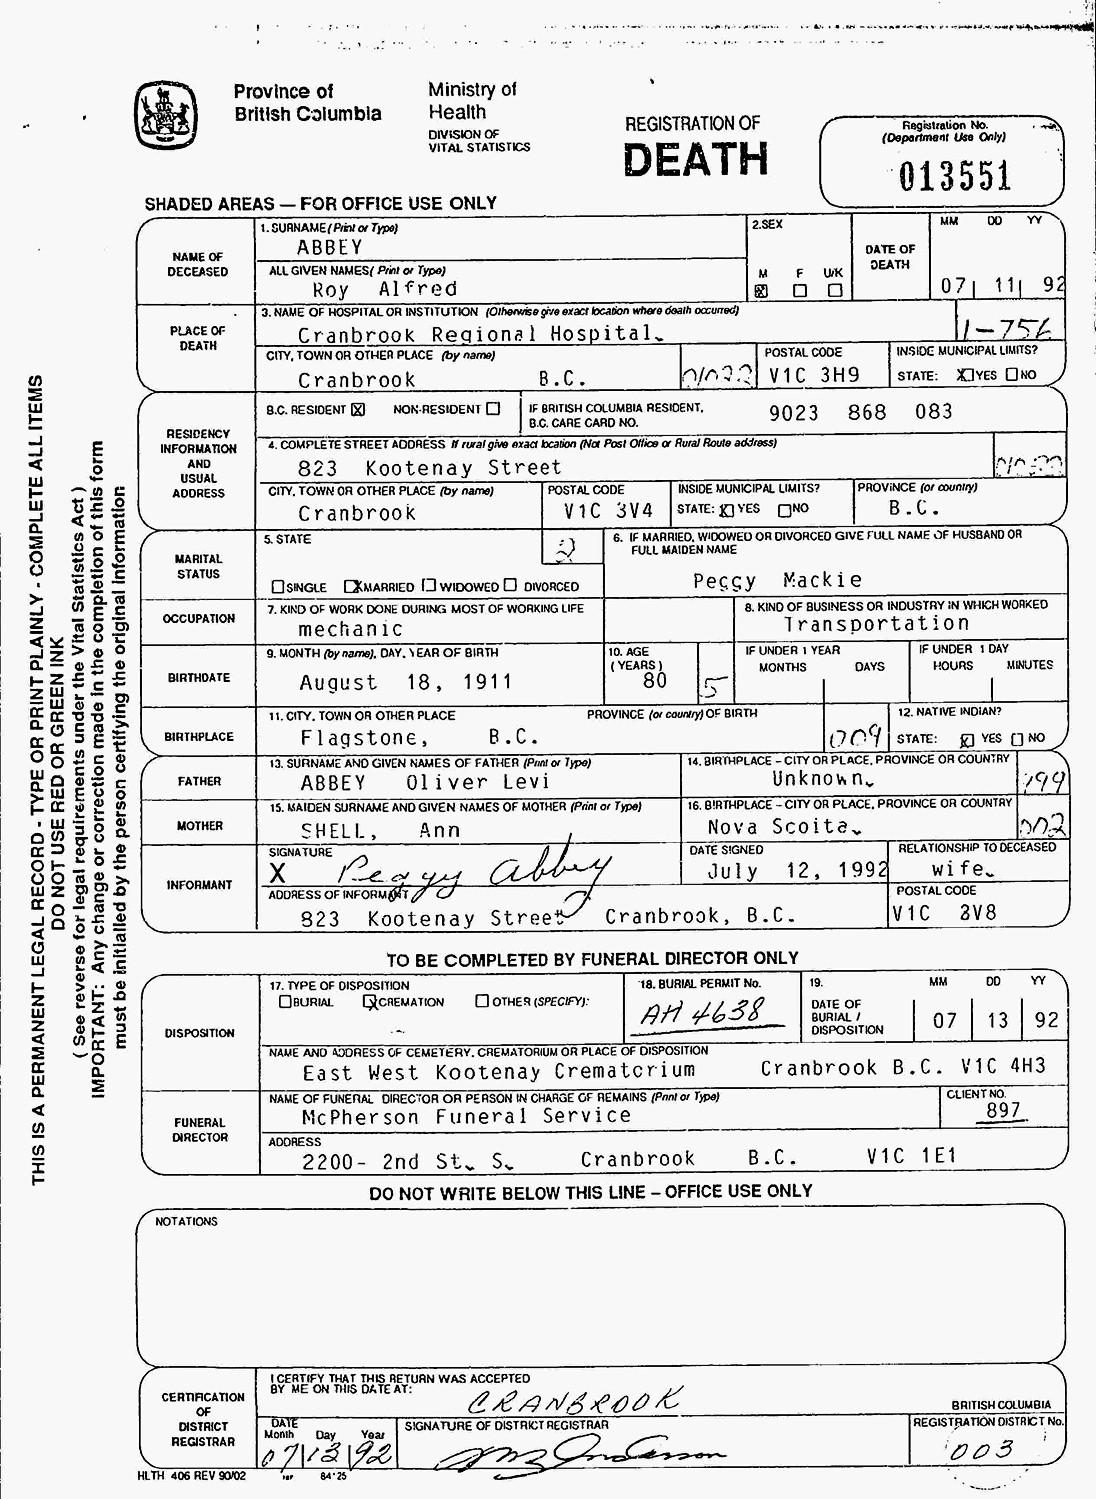 Province of
British Columbia
Ministry of
Health
DIVISION OF
VITAL STATISTICS
REGISTRATION OF
DEATH
Registration No.
(Department Use Only)
013551
SHADED AREAS — FOR OFFICE USE ONLY
NAME OF
DECEASED
1. SURNAME (Print or Type)
ABBEY
ALL GIVEN NAMES (Print or Type)
Roy Alfred
2.SEX
M F U/K
☒ ☐ ☐
DATE OF
DEATH
MM DD YY
07 11 92
PLACE OF
DEATH
3. NAME OF HOSPITAL OR INSTITUTION (Otherwise give exact location where death occurred)
Cranbrook Regional Hospital.
1-756
CITY, TOWN OR OTHER PLACE (by name)
Cranbrook B.C.
POSTAL CODE
V1C 3H9
INSIDE MUNICIPAL LIMITS?
STATE: ☒YES ☐NO
RESIDENCY
INFORMATION
AND
USUAL
ADDRESS
B.C. RESIDENT ☒ NON-RESIDENT ☐
IF BRITISH COLUMBIA RESIDENT,
B.C. CARE CARD NO.
9023 868 083
4. COMPLETE STREET ADDRESS If rural give exact location (Not Post Office or Rural Route address)
823 Kootenay Street
CITY, TOWN OR OTHER PLACE (by name)
Cranbrook
POSTAL CODE
V1C 3V4
INSIDE MUNICIPAL LIMITS?
STATE: ☒YES ☐NO
PROVINCE (or country)
B.C.
MARITAL
STATUS
5. STATE
2
☐SINGLE ☒MARRIED ☐WIDOWED ☐ DIVORCED
6. IF MARRIED, WIDOWED OR DIVORCED GIVE FULL NAME OF HUSBAND OR
FULL MAIDEN NAME
Peggy Mackie
OCCUPATION
7. KIND OF WORK DONE DURING MOST OF WORKING LIFE
mechanic
8. KIND OF BUSINESS OR INDUSTRY IN WHICH WORKED
Transportation
BIRTHDATE
9. MONTH (by name), DAY, YEAR OF BIRTH
August 18, 1911
10. AGE
(YEARS)
80
5
IF UNDER 1 YEAR
MONTHS DAYS
IF UNDER 1 DAY
HOURS MINUTES
BIRTHPLACE
11. CITY, TOWN OR OTHER PLACE PROVINCE (or country) OF BIRTH
Flagstone, B.C.
009
12. NATIVE INDIAN?
STATE: ☒ YES ☐ NO
FATHER
13. SURNAME AND GIVEN NAMES OF FATHER (Print or Type)
ABBEY Oliver Levi
14. BIRTHPLACE – CITY OR PLACE, PROVINCE OR COUNTRY
Unknown.
199
MOTHER
15. MAIDEN SURNAME AND GIVEN NAMES OF MOTHER (Print or Type)
SHELL, Ann
16. BIRTHPLACE – CITY OR PLACE, PROVINCE OR COUNTRY
Nova Scoita.
002
INFORMANT
SIGNATURE
X Peggy Abbey
DATE SIGNED
July 12, 1992
RELATIONSHIP TO DECEASED
wife.
ADDRESS OF INFORMANT
823 Kootenay Street Cranbrook, B.C.
POSTAL CODE
V1C 3V8
TO BE COMPLETED BY FUNERAL DIRECTOR ONLY
DISPOSITION
17. TYPE OF DISPOSITION
☐BURIAL ☒CREMATION ☐ OTHER (SPECIFY):
18. BURIAL PERMIT No.
AH 4638
19.
DATE OF
BURIAL /
DISPOSITION
MM DD YY
07 13 92
NAME AND ADDRESS OF CEMETERY, CREMATORIUM OR PLACE OF DISPOSITION
East West Kootenay Crematorium Cranbrook B.C. V1C 4H3
FUNERAL
DIRECTOR
NAME OF FUNERAL DIRECTOR OR PERSON IN CHARGE OF REMAINS (Print or Type)
McPherson Funeral Service
CLIENT NO.
897
ADDRESS
2200- 2nd St. S. Cranbrook B.C. V1C 1E1
DO NOT WRITE BELOW THIS LINE – OFFICE USE ONLY
NOTATIONS
CERTIFICATION
OF
DISTRICT
REGISTRAR
I CERTIFY THAT THIS RETURN WAS ACCEPTED
BY ME ON THIS DATE AT:
CRANBROOK
BRITISH COLUMBIA
DATE
Month Day Year
07 13 92
SIGNATURE OF DISTRICT REGISTRAR
REGISTRATION DISTRICT No.
003
HLTH 406 REV 90/02
THIS IS A PERMANENT LEGAL RECORD - TYPE OR PRINT PLAINLY - COMPLETE ALL ITEMS
DO NOT USE RED OR GREEN INK
( See reverse for legal requirements under the Vital Statistics Act )
IMPORTANT: Any change or correction made in the completion of this form
must be initialled by the person certifying the original information